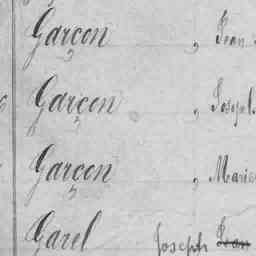 Garçon , Jean
Garçon , Joseph
Garçon , Marie
Garel Joseph Jean